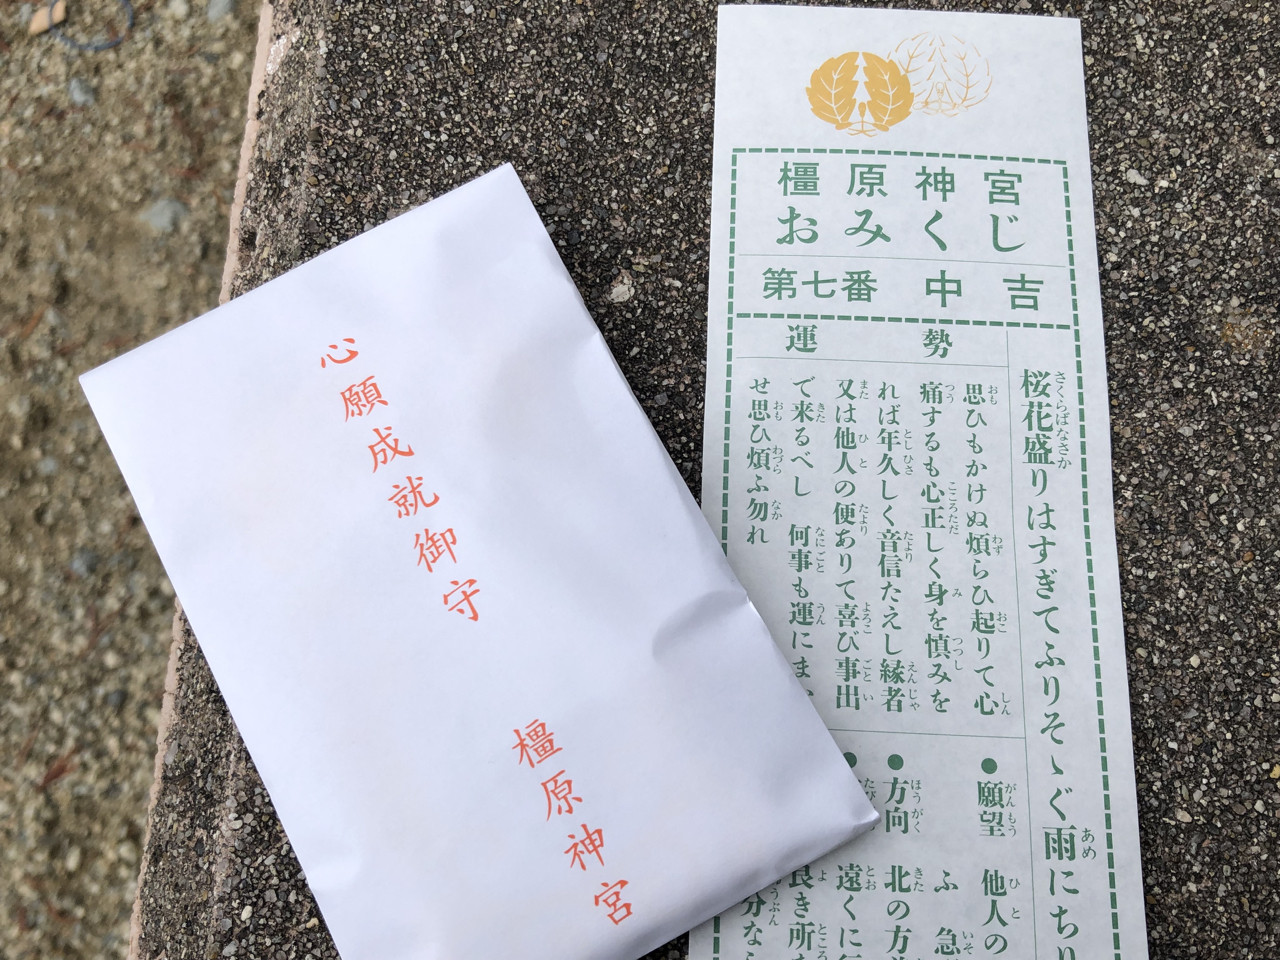 心願成就御守
橿原神宮
橿原神宮
おみくじ
第七番 中吉
桜花盛りはすぎてふりそゝぐ雨にちり
運勢
思ひもかけぬ煩らひ起りて心
痛するも心正しく身を慎みを
れば年久しく音信たえし縁者
又は他人の便ありて喜び事出
で来るべし 何事も運にま
せ思ひ煩ふ勿れ
●願望 他人の
ふ 急
●方向 北の方
遠くに
良き所
分な